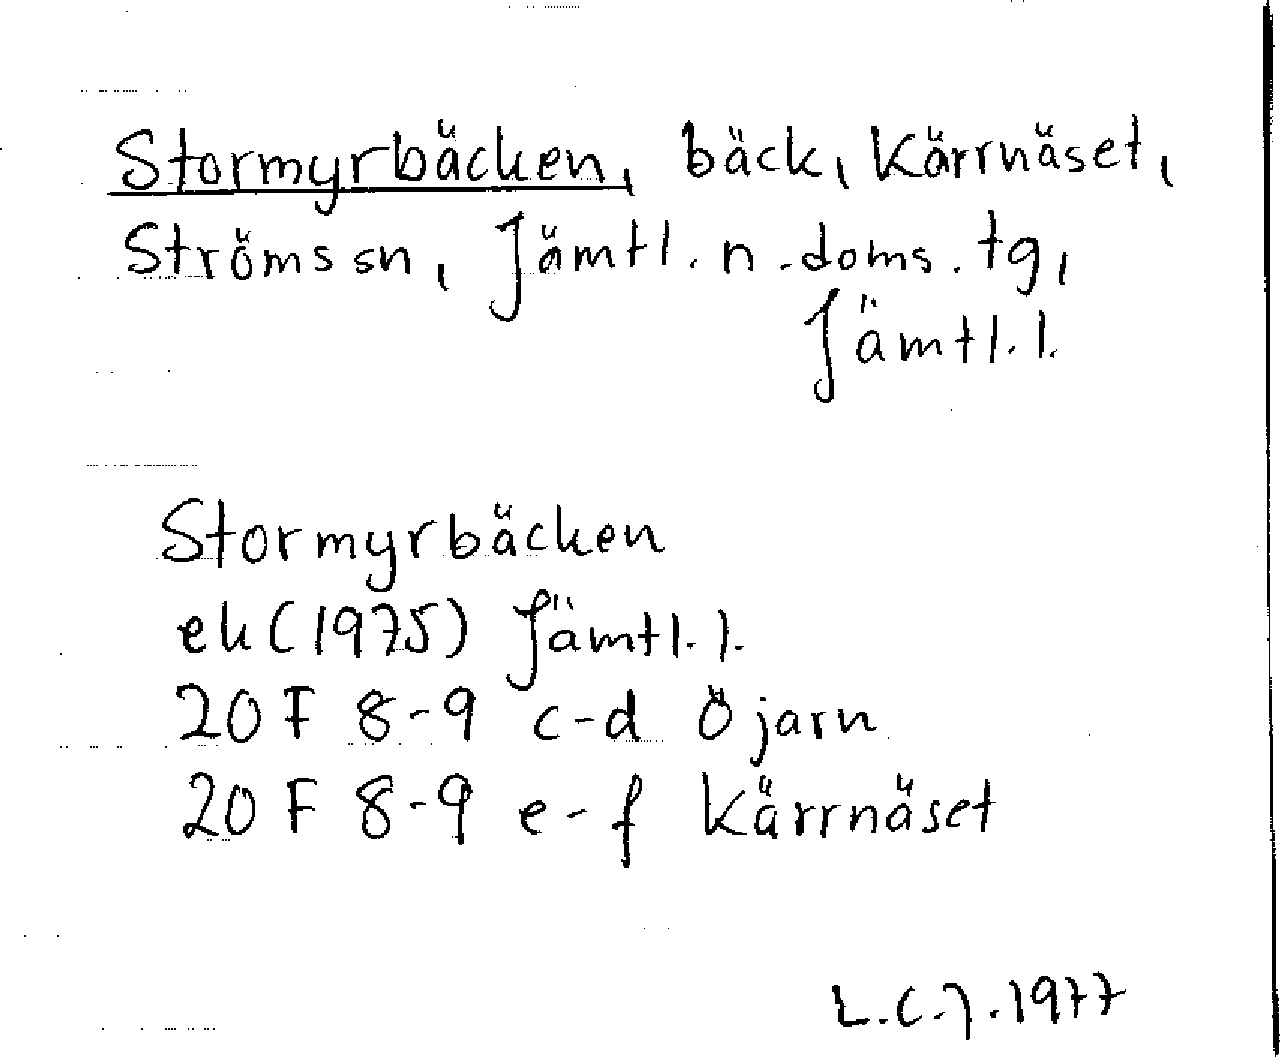 Stormyrbäcken, bäck, Kärrnäset,
Ströms sn, Jämtl. n. doms. tg,
Jämtl. l.
Stormyrbäcken
ek (1975) Jämtl. l.
20 F 8-9 c-d Öjarn
20 F 8-9 e-f Kärrnäset
L.C.J. 1977